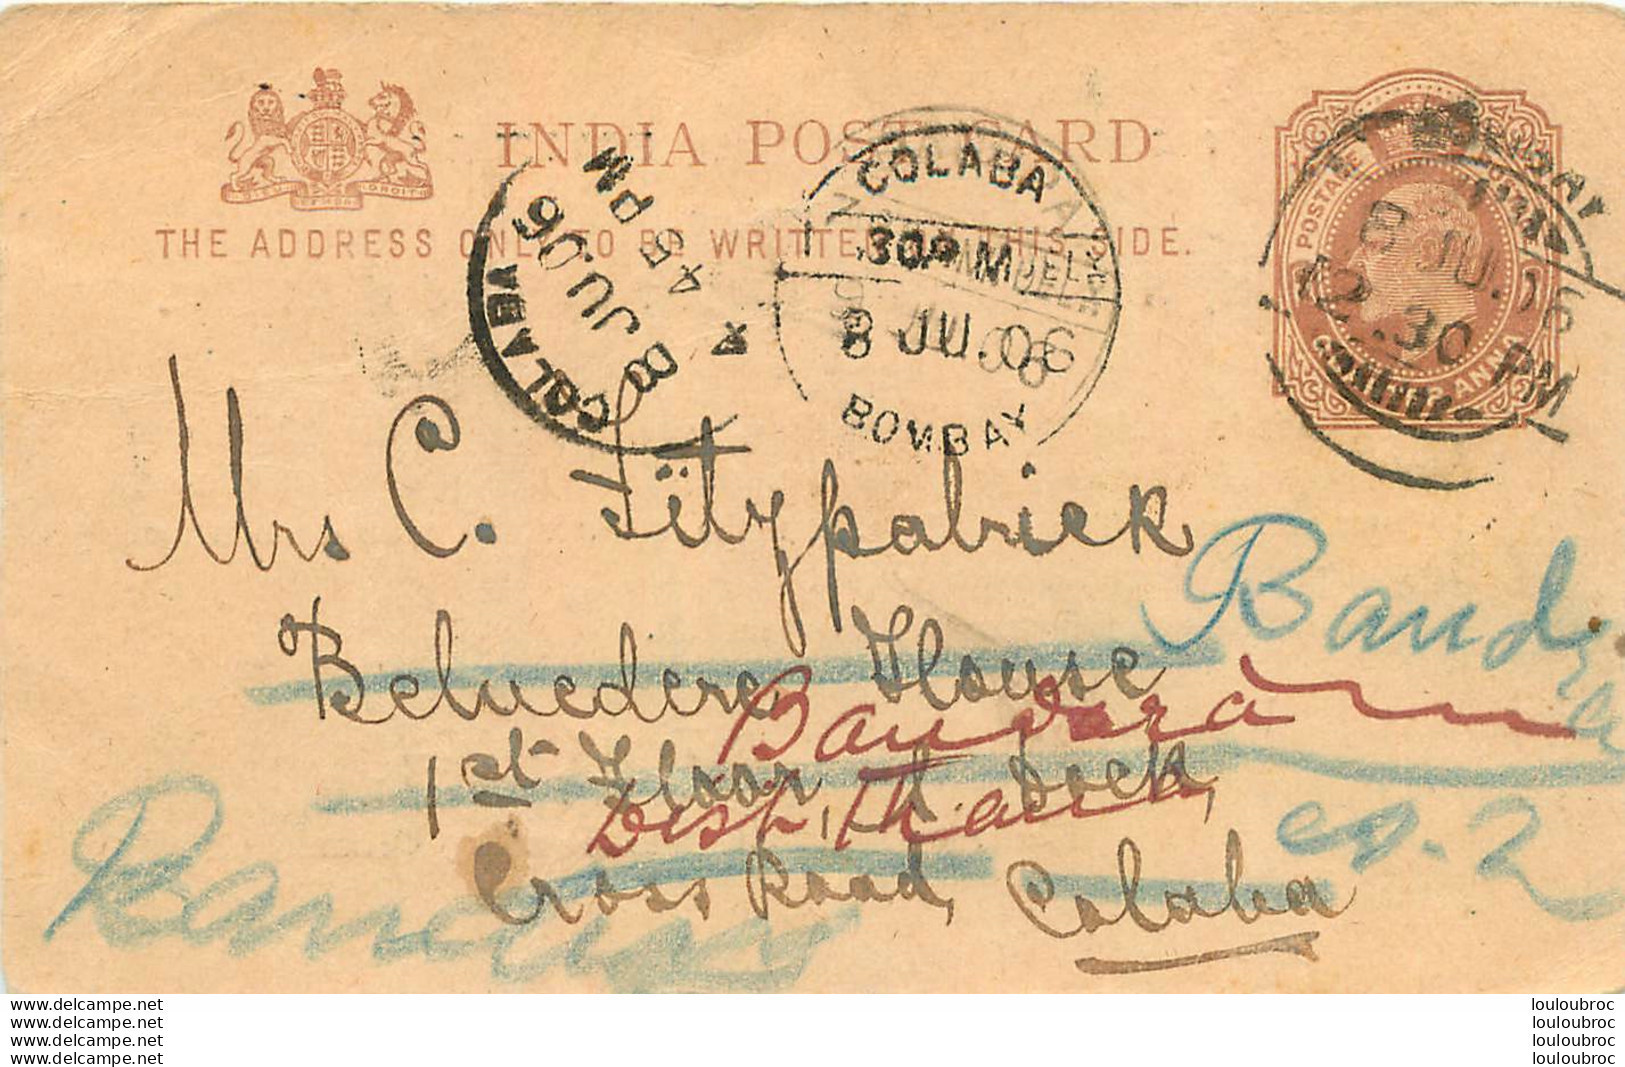 INDIA POST CARD
THE ADDRESS ONLY TO BE WRITTEN ON THIS SIDE.
COLABA
8 JU 06
4 45 PM
COLABA
30PM
8 JU.06
BOMBAY
POSTAGE
BOMBAY
8 JU. 06
12.30 PM
Mrs C. Fitzpatrick
Belvedere House
1st Floor,
Cross Road, Colaba
Bandra
Bandora
Dist. Thana
www.delcampe.net
www.delcampe.net
www.delcampe.net
www.delcampe.net
louloubroc
louloubroc
louloubroc
louloubroc